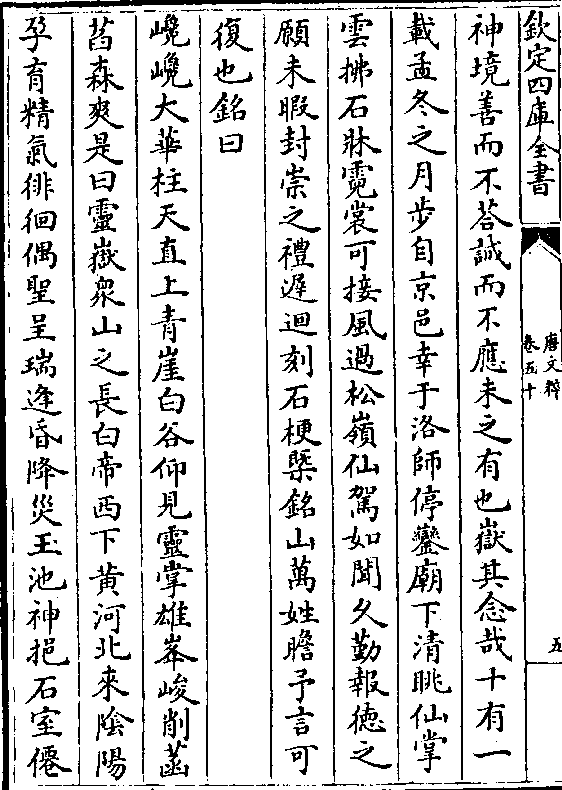 欽定四庫全書
唐文粹
卷五十
五
神境善而不荅誠而不應未之有也嶽其念哉十有一
載孟冬之月步自京邑幸于洛師停鑾廟下清眺仙掌
雲拂石牀霓裳可接風過松嶺仙駕如聞久勤報德之
願未暇封崇之禮遲迴刻石梗槩銘山萬姓瞻予言可
復也銘曰
巉巉大華柱天直上青崖白谷仰見靈掌雄峯峻削菡
萏森爽是曰靈嶽衆山之長白帝西下黄河北來隂陽
孕育精氣徘徊偶聖呈瑞逢昏降災玉池神挹石室僊